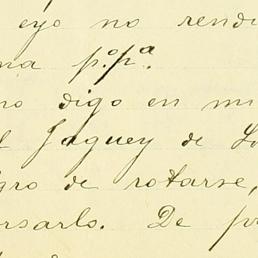 eyo no rendi
na p.ºp.ª
no digo en mi
l Jaguey de Lo
gro de rotarse,
rsarlo. De po